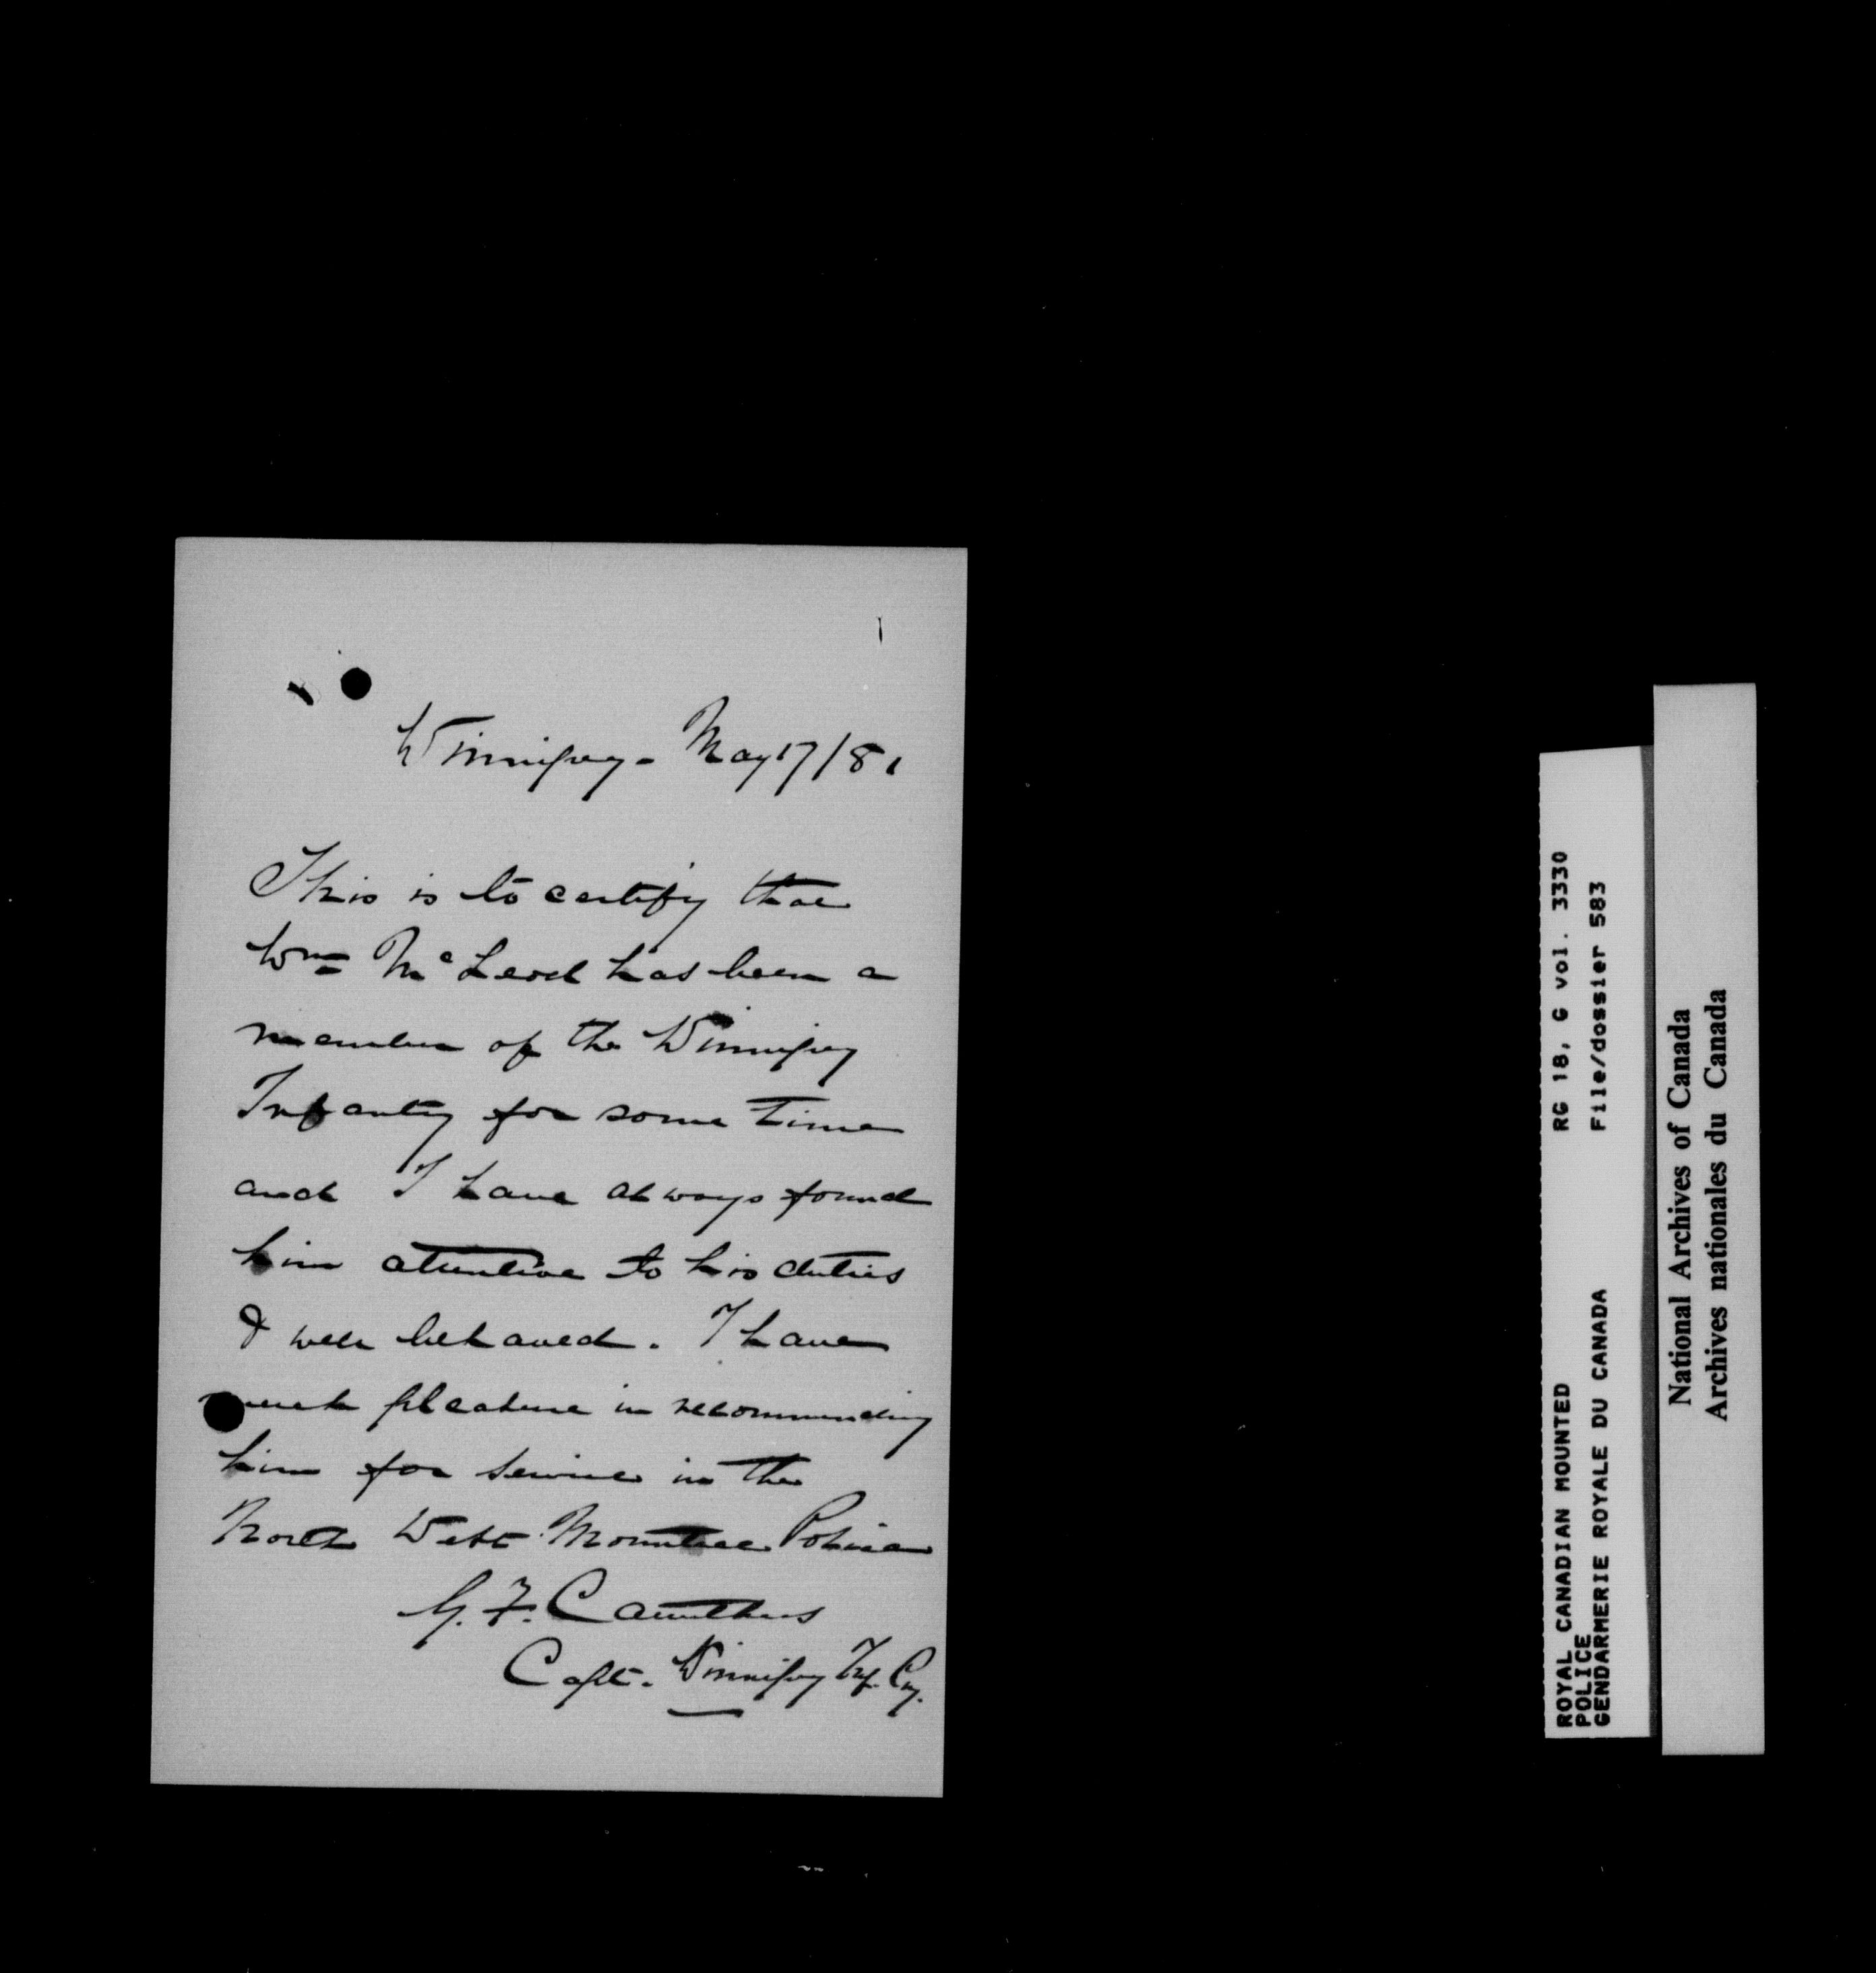 Winnipeg - May 17/81
This is to certify that
Wm McLeod has been a
member of the Winnipeg
Infantry for some time
and I have always found
him attentive to his duties
& well behaved. I have
much pleasure in recommending
him for service in the
North West Mounted Police
G. F. Carruthers
Capt. Winnipeg Inf. Coy.
ROYAL CANADIAN MOUNTED
POLICE
GENDARMERIE ROYALE DU CANADA
RG 18, G vol. 3330
File/dossier 583
National Archives of Canada
Archives nationales du Canada